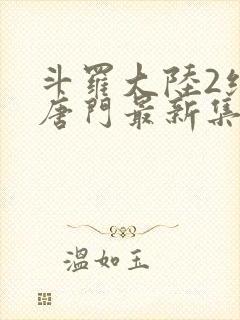 斗羅大陸2
唐門最新集
溫如玉